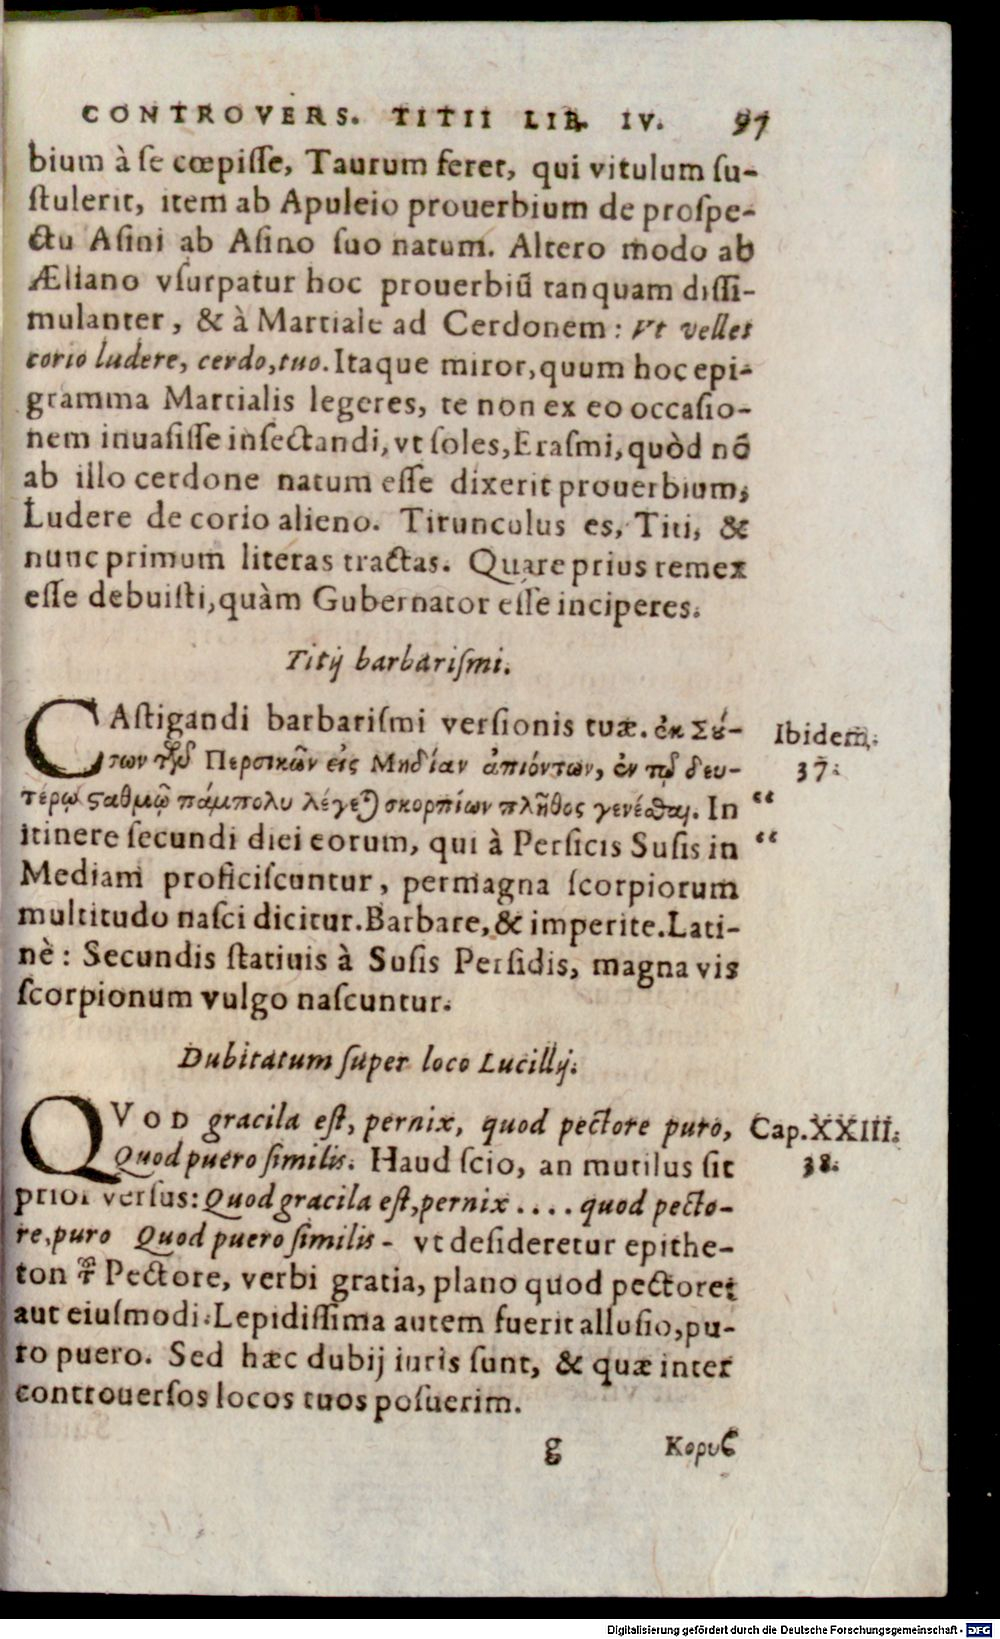 CONTROVERS. TITII LIB. IV. 97
bium à se cœpisse, Taurum feret, qui vitulum su-
stulerit, item ab Apuleio prouerbium de prospe-
ctu Asini ab Asino suo natum. Altero modo ab
Æliano vsurpatur hoc prouerbiũ tanquam dissi-
mulanter, & à Martiale ad Cerdonem: Vt velles
corio ludere, cerdo, tuo. Itaque miror, quum hoc epi-
gramma Martialis legeres, te non ex eo occasio-
nem inuasisse insectandi, vt soles, Erasmi, quòd nō
ab illo cerdone natum esse dixerit prouerbium,
Ludere de corio alieno. Titunculus es, Titi, &
nunc primum literas tractas. Quare prius remex
esse debuisti, quàm Gubernator esse inciperes.
Titij barbarismi.
CAstigandi barbarismi versionis tuæ. ἐκ Σού-
των τῶν Περσικῶν εἰς Μηδίαν ἀπιόντων, ἐν τῷ δευ-
τέρῳ ϛαθμῷ πάμπολυ λέγεται σκορπίων πλῆθος γενέσθαι. In
itinere secundi diei eorum, qui à Persicis Susis in
Mediam proficiscuntur, permagna scorpiorum
multitudo nasci dicitur. Barbare, & imperite. Lati-
nè: Secundis statiuis à Susis Persidis, magna vis
scorpionum vulgo nascuntur.
Ibidem.
37.
“
“
Dubitatum super loco Lucillij.
QVOD gracila est, pernix, quod pectore puro,
Quod puero similis. Haud scio, an mutilus sit
prior versus: Quod gracila est, pernix .... quod pecto-
re, puro Quod puero similis - vt desideretur epithe-
ton τοῦ Pectore, verbi gratia, plano quod pectore:
aut eiusmodi. Lepidissima autem fuerit allusio, pu-
ro puero. Sed hæc dubij iuris sunt, & quæ inter
controuersos locos tuos posuerim.
Cap. XXIII.
38.
g Κορυϛ
Digitalisierung gefördert durch die Deutsche Forschungsgemeinschaft - DFG